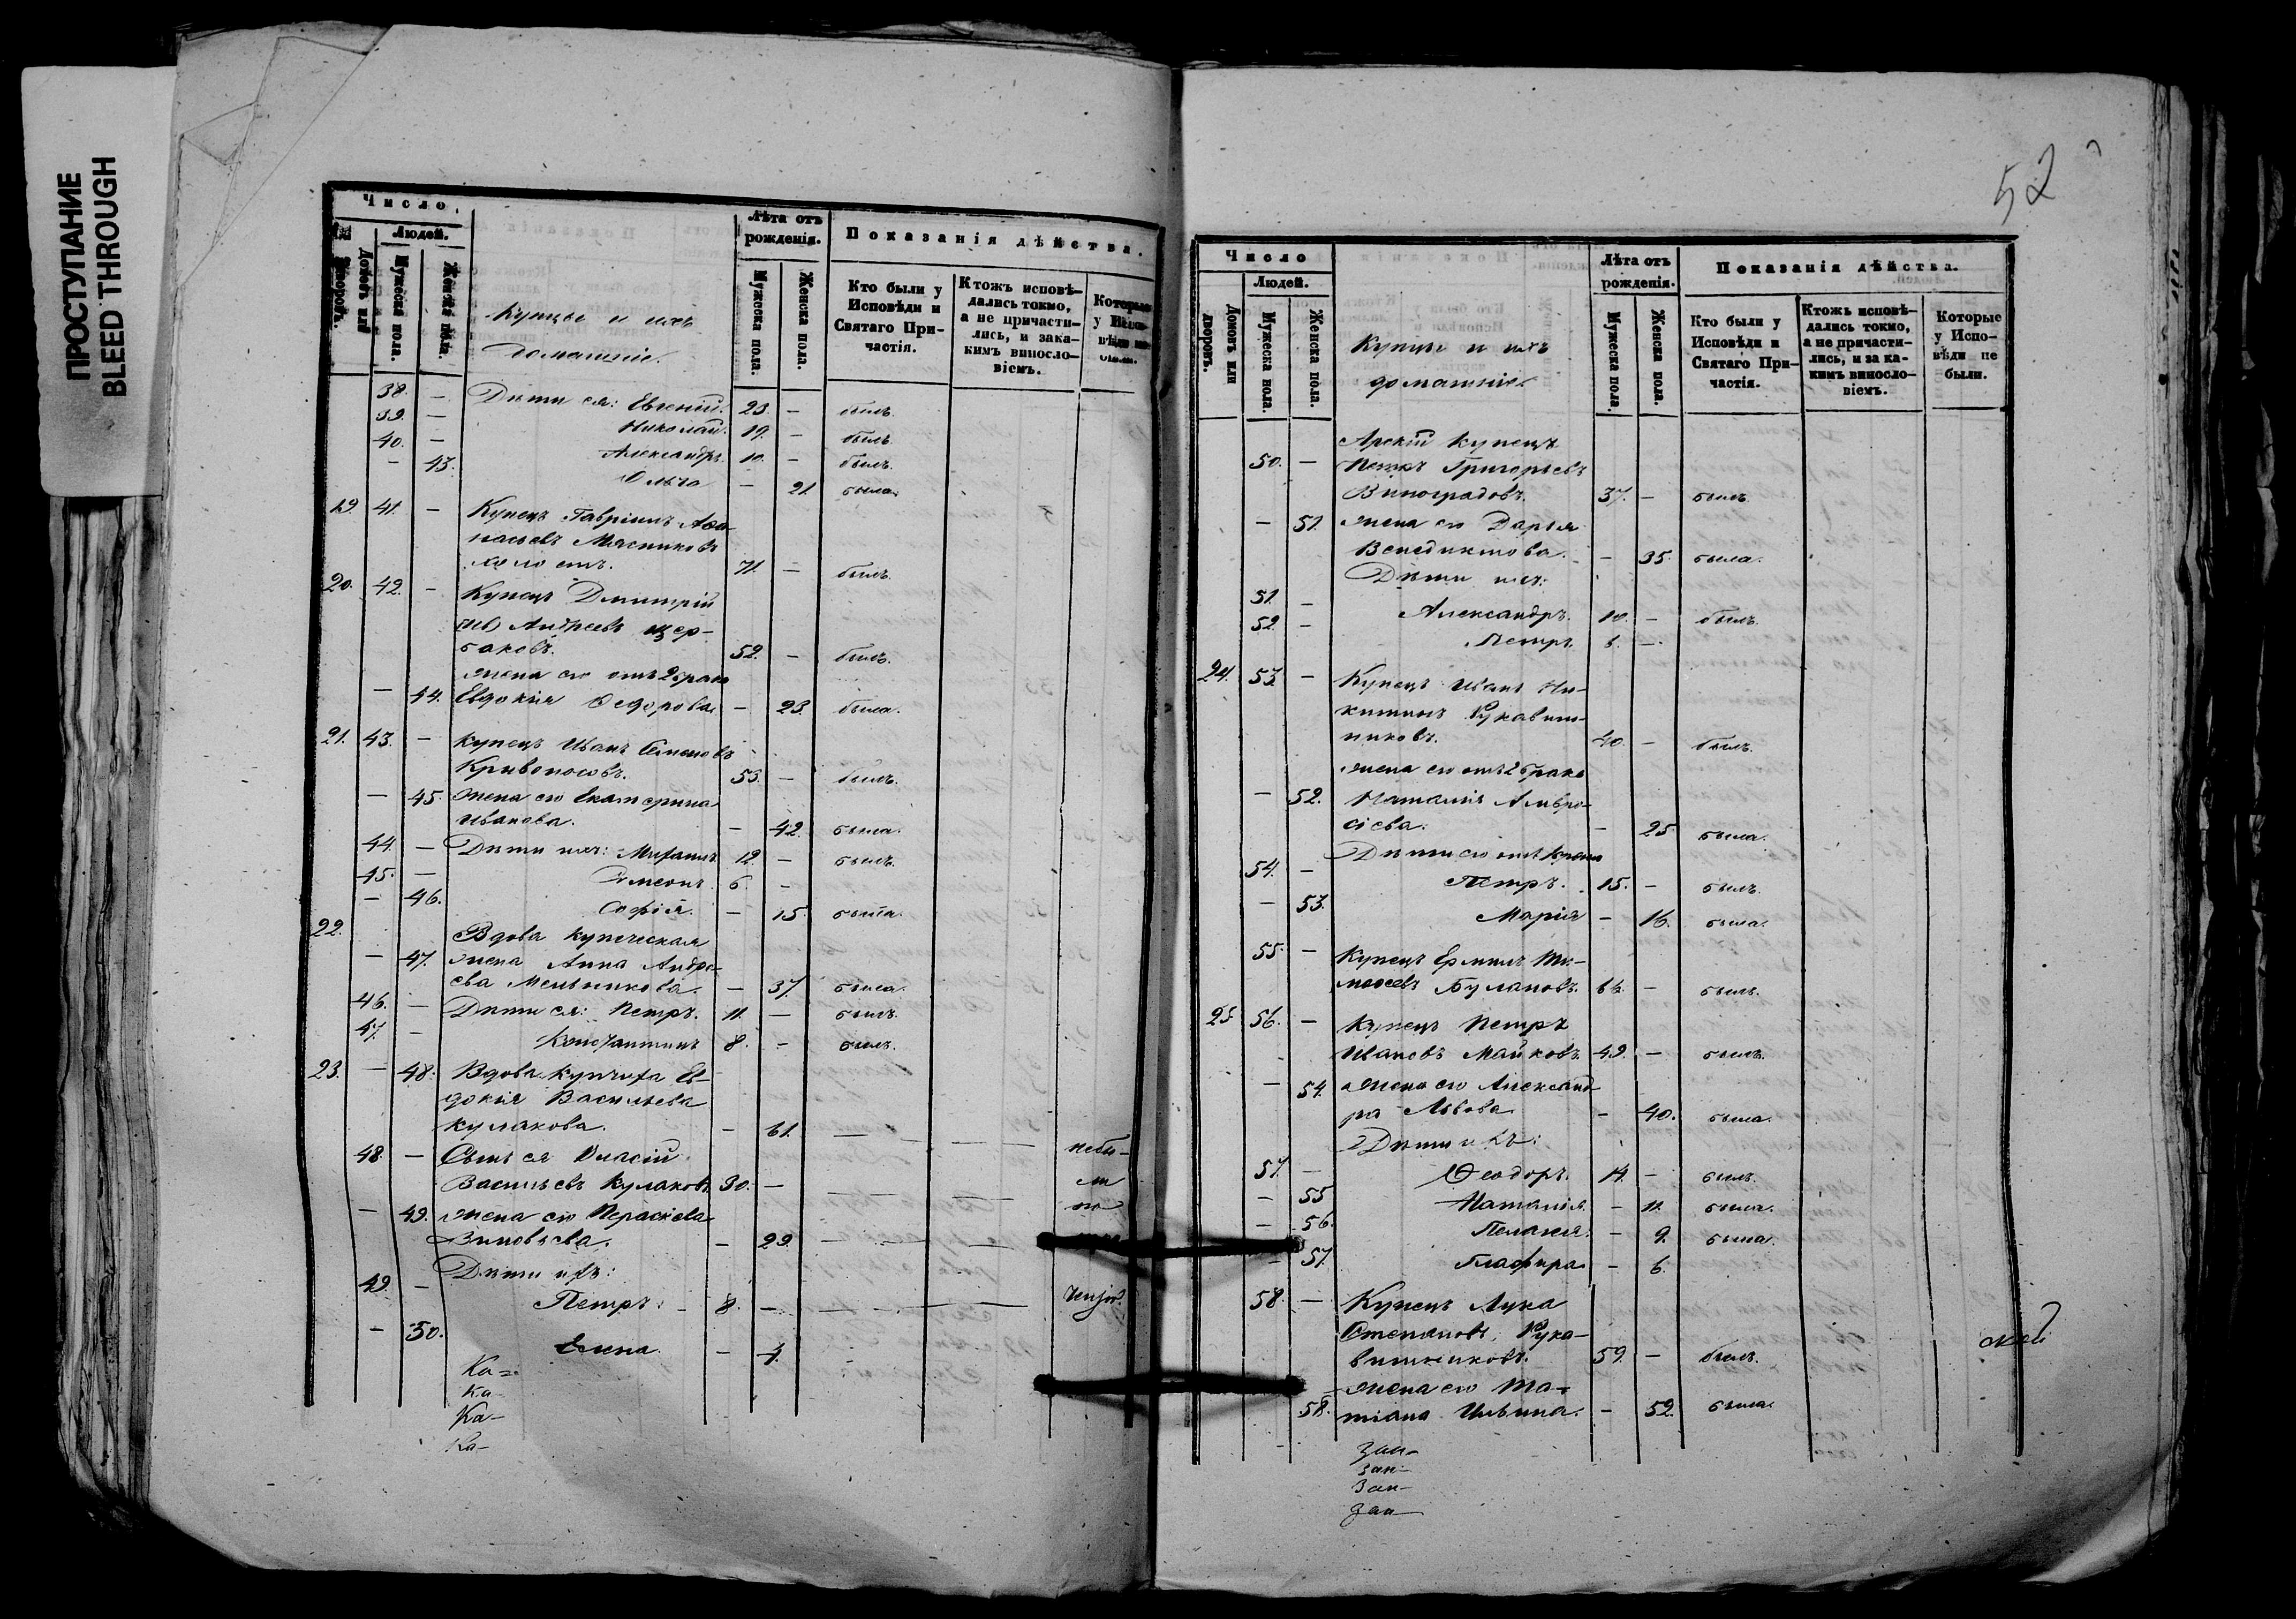 ПРОСТУПАНИЕ
BLEED THROUGH
Число.
Людей.
Домовъ или дворовъ.
Мужеска пола.
Женска пола.
Купцы и ихъ
домашніе.
Лѣта отъ
рожденія.
Мужеска пола.
Женска пола.
Показанія дѣйства.
Кто были у
Исповѣди и
Святаго При-
частія.
Ктожъ исповѣ-
дались токмо,
а не причасти-
лись, и зака-
кимъ виносло-
віемъ.
Которые
у Испо-
вѣди не
были.
38. — Дѣти ея: Евгеній. 23. — былъ.
39. — Николай. 19. — былъ.
40. — Александръ. 10. — былъ.
— 43. Ольга — 21. была.
19. 41. — Купецъ Гавріилъ Аѳа-
насьевъ Мясниковъ
холостъ. 71. — былъ.
20. 42. — Купецъ Димитрій
Андреевъ Щер-
баковъ. 52. — былъ.
жена его отъ 2 брака
— 44. Евдокія Ѳедорова. — 23. была.
21. 43. — Купецъ Иванъ Семеновъ
Кривоносовъ. 53. — былъ.
— 45. Жена его Екатерина
Иванова. — 42. была.
44. — Дѣти ихъ: Михаилъ 12. — былъ.
45. — Симеонъ. 6. —
— 46. Софія. — 15. была.
22. Вдова купеческая
— 47. жена Анна Андре-
ева Мельникова. — 37. была.
46. — Дѣти ея: Петръ. 11. — былъ.
47. — Константинъ 8. — былъ.
23. — 48. Вдова Купчиха Ев-
докія Васильева
Кулакова. — 61. — — —
48. — Сынъ ея Власій небы-
Васильевъ Кулаковъ 30. — — — — ли
— 49. жена его Параскева по
Зиновьева. — 29. — — —
Дѣти ихъ:
49. — Петръ. — 8. — — — —
— 50. Елена. — 4.
Ка-
Ка-
Ка-
Ка-
52
Число
Людей.
Домовъ или дворовъ.
Мужеска пола.
Женска пола.
Купцы и ихъ
домашніе
Лѣта отъ
рожденія.
Мужеска пола.
Женска пола.
Показанія дѣйства.
Кто были у
Исповѣди и
Святаго При-
частія.
Ктожъ исповѣ-
дались токмо,
а не причасти-
лись, и за ка-
кимъ виносло-
віемъ.
Которые
у Испо-
вѣди не
были.
Арскій купецъ
50. — Петръ Григорьевъ
Виноградовъ. 37. — былъ.
— 51. жена его Дарья
Венедиктова. — 35. была.
Дѣти ихъ:
51. — Александръ. 10. — былъ.
52. — Петръ. 6. —
24. 53. — Купецъ Иванъ Ни-
китинъ Рукавиш-
никовъ. 40. — былъ.
жена его отъ 2 брака
— 52. Наталія Амвро-
сіева. — 25. была.
Дѣти его отъ 1 брака
54. — Петръ. 15. — былъ.
— 53. Марія — 16. была.
55. — Купецъ Ермилъ Ти-
моѳеевъ Булановъ. — былъ.
25. 56. — Купецъ Петръ
Ивановъ Майковъ. 49. — былъ.
— 54. жена его Александ-
ра Львова. — 40. была.
Дѣти ихъ:
57. — Ѳеодоръ. 14. — былъ.
— 55 Наталія. — 11. была.
— 56. Пелагія. — 9. была.
— 57. Глафира — 6.
58. — Купецъ Лука
Степановъ Рука-
вишниковъ. 59. — былъ.
жена его Та-
58. тіана Ильина. — 52. была.
зан-
зан-
зан-
зан-
ской